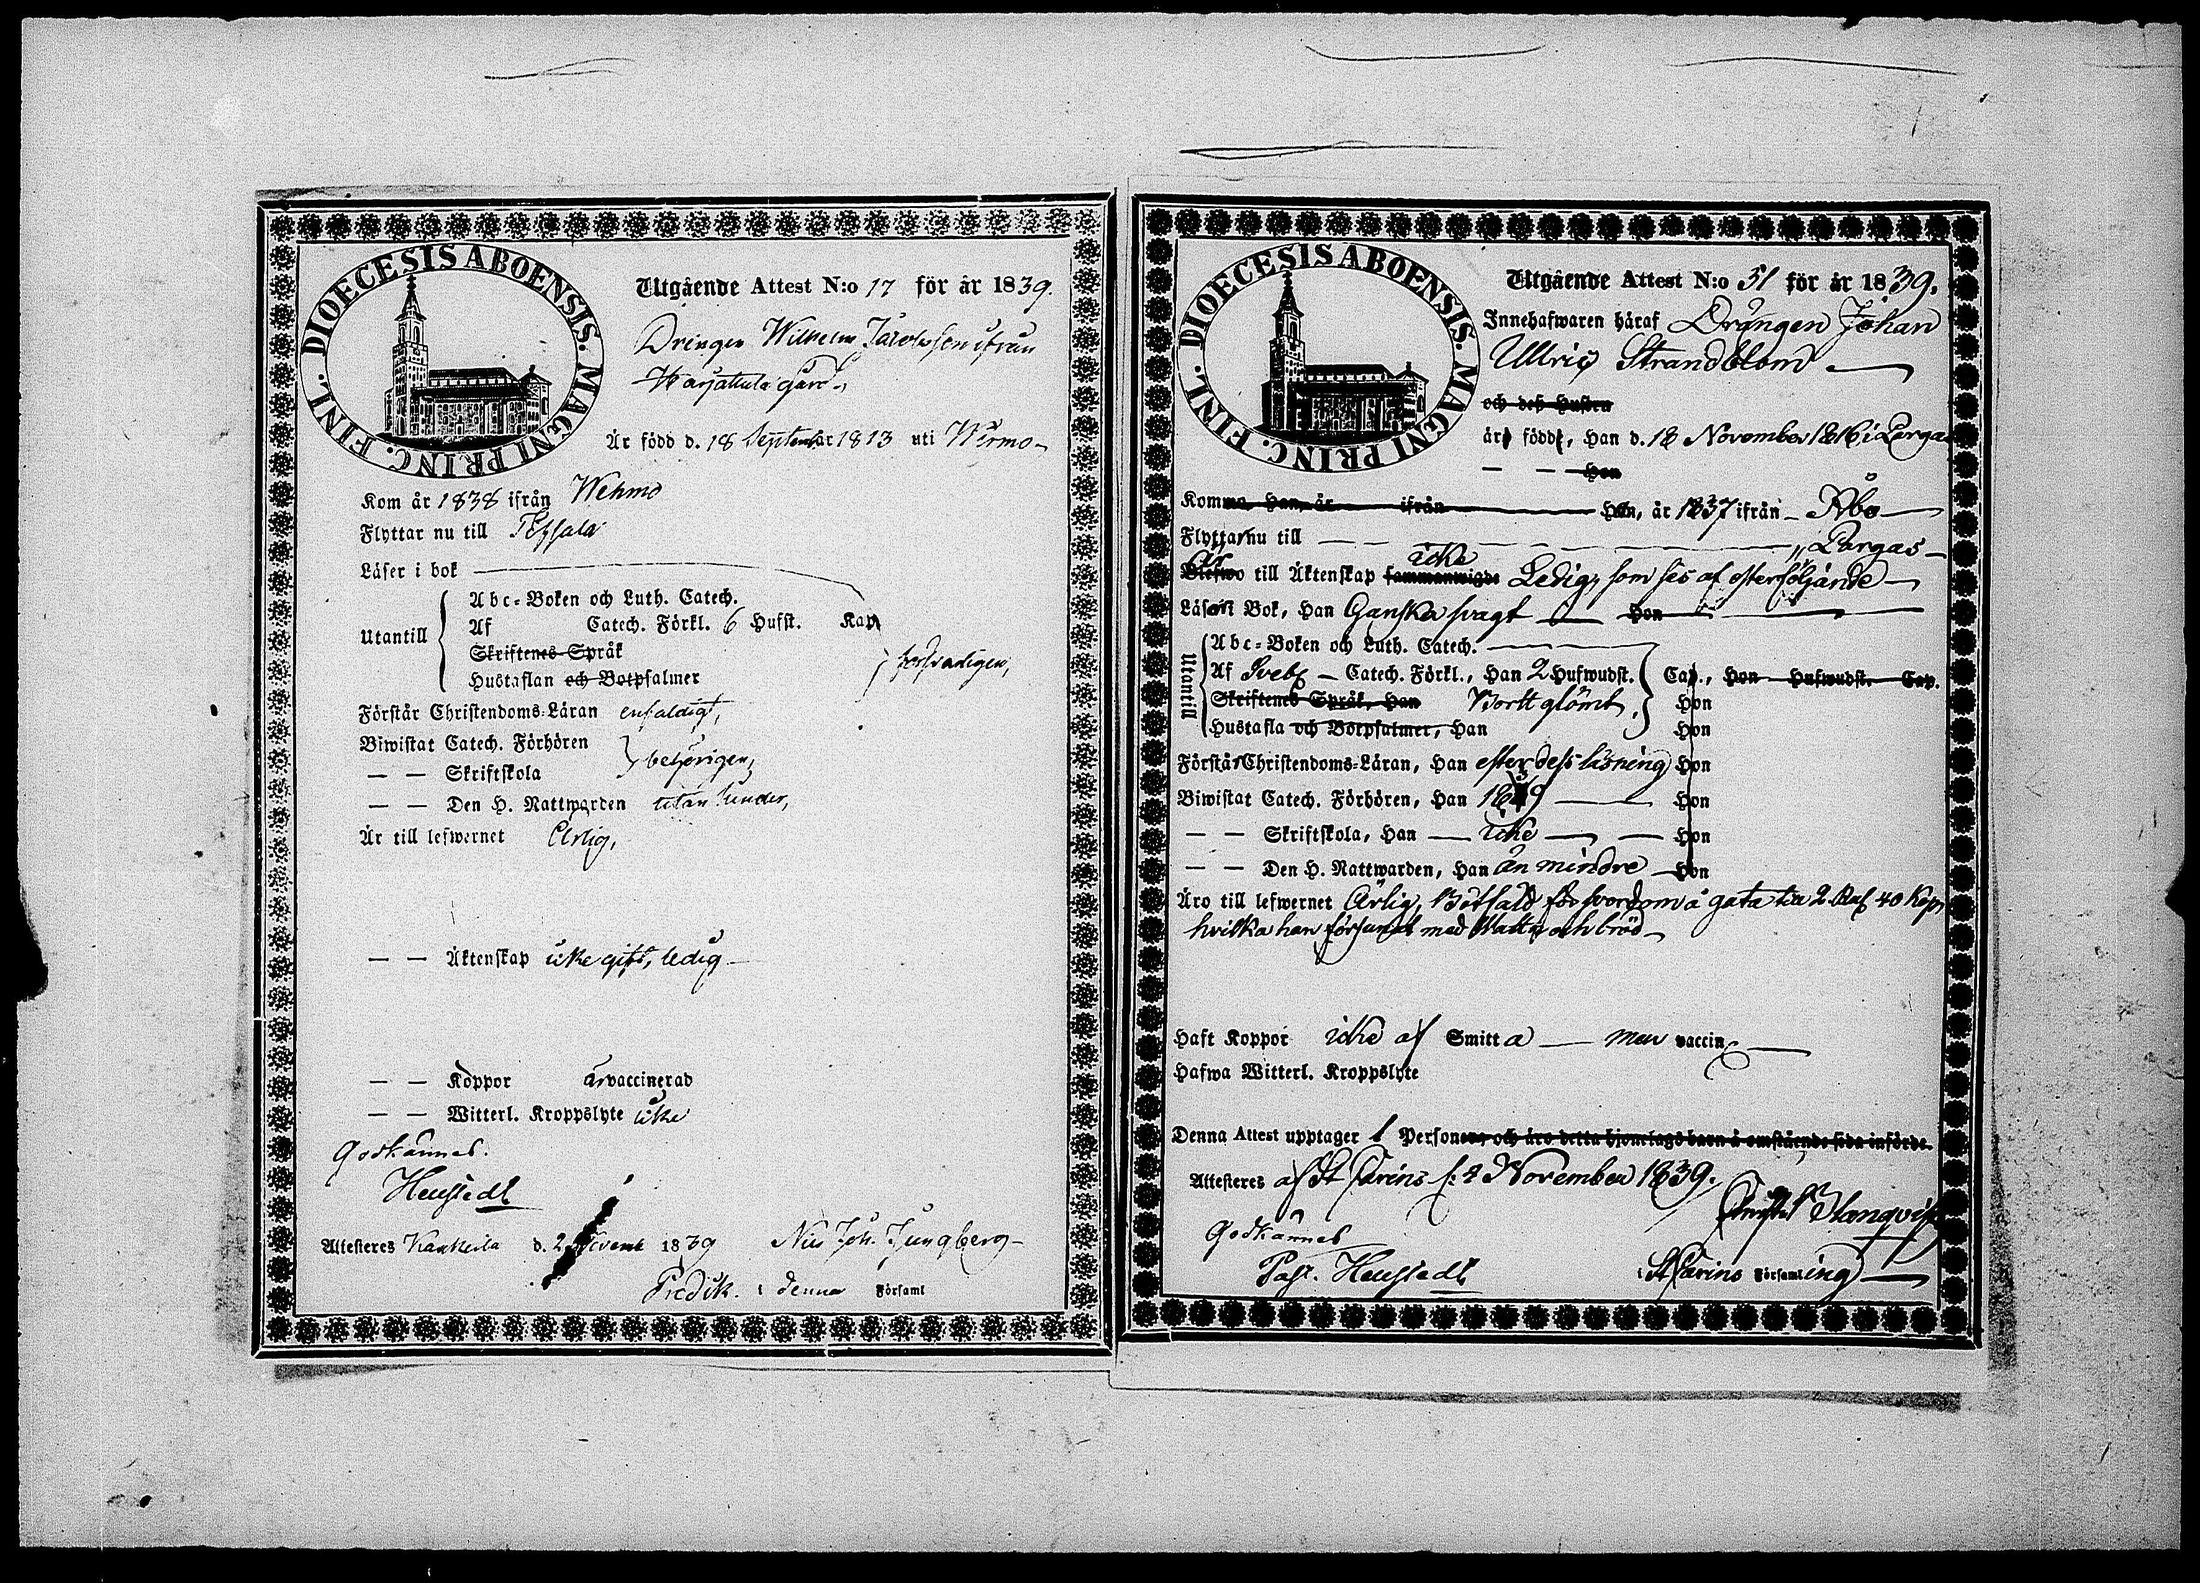 DIOECESIS ABOENSIS. MAGNI PRINC. FINL.
Utgående Attest N:o 17 för år 1839.
Drängen Wilhelm Jacobsson ifrån
Harjattula gård,
Är född d. 18 September 1813 uti Wirmo
Kom år 1838 ifrån Wehmo
Flyttar nu till
Läser i bok
Utantill
Abc-Boken och Luth. Catech.
Af Catech. Förkl. 6 Hufst. Kap
Skriftenes Språk
Hustaflan och Botpsalmer
försvarligen,
Förstår Christendoms-Läran enfaldigt,
Biwistat Catech. Förhören
— — Skriftskola
behörigen,
— — Den H. Nattwarden utan hinder,
Är till lefwernet Ärlig,
— — Äktenskap icke gift, ledig
— — Koppor är vaccinerad
— — Witterl. Kroppslyte icke
Godkännes.
Heustedt
Attesteres Kakkerla d. 2 Novemb 1839 Nils Joh. Ljungberg
Predik. i denna Församl
DIOECESIS ABOENSIS. MAGNI PRINC. FINL.
Utgående Attest N:o 51 för år 1839.
Innehafwaren häraf Drängen Johan
Ulric Strandblom
och deß Hustru
är född, Han d. 18 November 1816 i Pargas
— — Hon
Komma, Han, år ifrån Han, år 1837 ifrån Åbo
Flyttar nu till Pargas
är icke
till Äktenskap sammanwigde Ledig, som ses af efterföljande
Läser i Bok, Han Ganska svagt Hon
Utantill
Abc-Boken och Luth. Catech.
Af Sveb. Catech. Förkl., Han 2 Hufwudst. Cap., Hon Hufwudst. Cap.
Skriftenes Språk, Han Bortt glömt, Hon
Hustafla och Botpsalmer, Han Hon
Förstår Christendoms-Läran, Han efter dess läsning Hon
Biwistat Catech. Förhören, Han 1839 Hon
— — Skriftskola, Han icke Hon
— — Den H. Nattwarden, Han än mindre Hon
Äro till lefwernet Ärlig, Bötfäld för svordom å gata till 2 Rub. 40 Kop,
hvilka han försonat med Vatten och bröd
Haft Koppor icke af Smitta men vaccin
Hafwa Witterl. Kroppslyte
Denna Attest upptager 1 Personer, och äro detta hjonelags barn å omstående sida införde.
Attesteres af St Carins d. 2 November 1839.
Godkännes
Past. Heustedt
i St Carins Församling